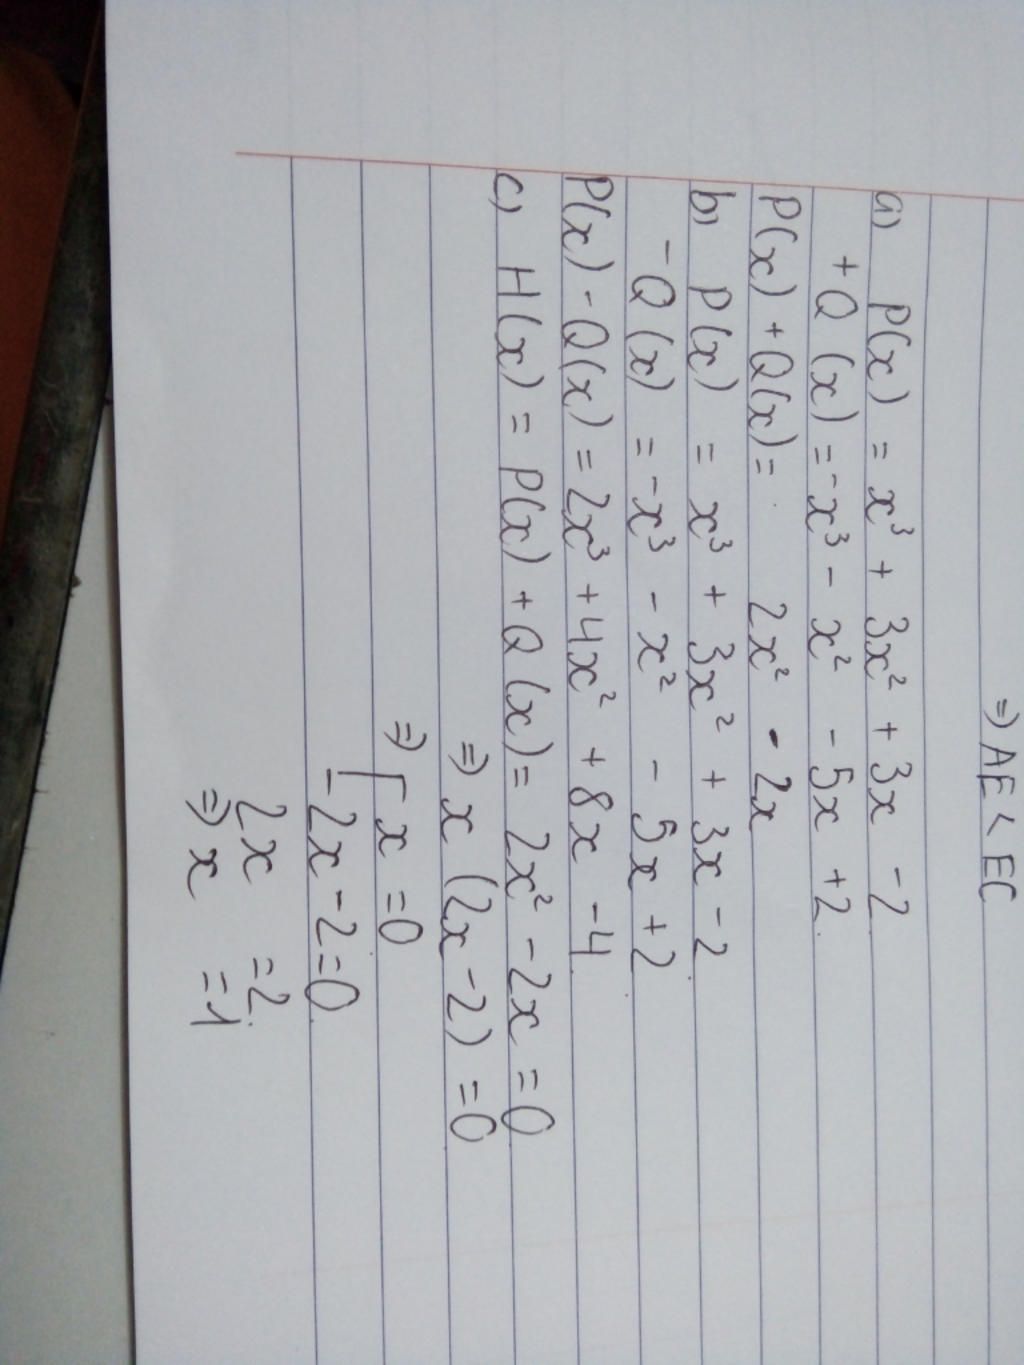 =) AE < EC
a) P(x) = x³ + 3x² + 3x - 2
+ Q(x) = -x³ - x² - 5x + 2
P(x) + Q(x) = 2x² - 2x
b) P(x) = x³ + 3x² + 3x - 2
- Q(x) = -x³ - x² - 5x + 2
P(x) - Q(x) = 2x³ + 4x² + 8x - 4
c) H(x) = P(x) + Q(x) = 2x² - 2x = 0
=) x (2x - 2) = 0
=) [ x = 0
2x - 2 = 0
2x = 2
=) x = 1